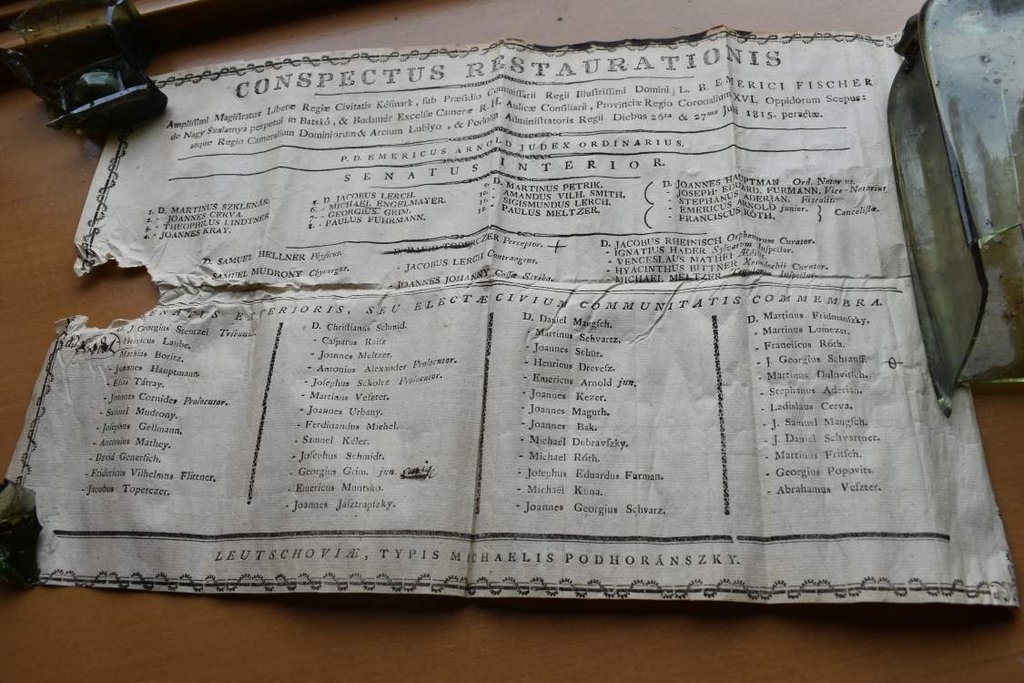 CONSPECTUS RESTAURATIONIS
Amplissimi Magistratus Liberæ Regiæ Civitatis Késmark, sub Præsidio Commissarii Regii Illustrissimi Domini, L. B. EMERICI FISCHER
de Nagy Szalatnya perpetui in Batskó, & Budamér Excelsæ Cameræ R. H. Aulicæ Consiliarii, Provinciæ Regio Coronalium XVI. Oppidorum Scepus:
atque Regio Cameralium Dominiorum & Arcium Lublyo, & Podolin Administratoris Regii Diebus 26ta & 27ma Julii 1815. peractæ.
P. D. EMERICUS ARNOLD JUDEX ORDINARIUS.
SENATUS INTERIOR.
1. D. MARTINUS SZKLENÁR.
2. - JOANNES CERVA.
3. - THEOPHILUS LINDTNER
4. - JOANNES KRAY.
5. D. JACOBUS LERCH.
6. - MICHAEL ENGELMAYER.
7. - GEORGIUS GRIM.
8. - PAULUS FUHRMANN.
9. D. MARTINUS PETRIK.
10. - AMANDUS VILH. SMITH.
11. - SIGISMUNDUS LERCH.
12. - PAULUS MELTZER.
D. JOANNES HAUPTMAN Ord. Notarius.
- JOSEPH EDUARD. FURMANN. Vice-Notarius
- STEPHANUS ADERIAN. Fiscalis.
- EMERICUS ARNOLD junior. } Cancelistæ.
- FRANCISCUS RÓTH.
D. SAMUEL HELLNER Physicus.
SAMUEL MUDRONY Chyrurgus.
D. DAVID TOPERCZER Perceptor. +
- JACOBUS LERCH Contraagens.
- JOANNES JOHANNY Cassæ Scriba.
D. JACOBUS RHEINISCH Orphanorum Curator.
- IGNATIUS HADER Sylvarum Inspector.
- VENCESLAUS MATHEI Ædilis.
- HYACINTHUS BITTNER Xenodochii Curator.
- MICHAEL MELTZER Inspector.
SENATUS EXTERIORIS, SEU ELECTÆ CIVIUM COMMUNITATIS COMMEMBRA.
D. J. Georgius Stentzel Tribunus.
Henricus Laube.
Mathias Boritz.
- Joannes Hauptmann.
- Elias Tátray.
- Joannes Cornides Prolocutor.
- Samuel Mudrony.
- Josephus Gellmann.
- Antonius Mathey.
- David Genersich.
- Fridericus Vilhelmus Flittner.
- Jacobus Toperczer.
- D. Christianus Schmid.
- Casparus Raitz
- Joannes Meltzer.
- Antonius Alexander Prolocutor.
- Josephus Scholtz Prolocutor.
- Martinus Veszter.
- Joannes Urbany.
- Ferdinandus Miehel.
- Samuel Kéler.
- Josephus Schmidt.
- Georgius Grim. jun.
- Emericus Muntsko.
- Joannes Jaisztrapszky.
D. Daniel Maugsch.
- Martinus Schvartz.
- Joannes Schür.
- Henricus Drevesz.
- Emericus Arnold jun.
- Joannes Kezer.
- Joannes Maguth.
- Joannes Bak.
- Michael Dubravszky.
- Michael Róth.
- Josephus Eduardus Furman.
- Michael Kuna.
- Joannes Georgius Schvarz.
D. Martinus Fridmanszky.
- Martinus Lumczer.
- Franciscus Róth.
- J. Georgius Schrauff.
- Martinus Dulovitsch.
- Stephanus Aderian.
- Ladislaus Cerva.
- J. Samuel Maugsch.
- J. Daniel Schvartner.
- Martinus Fritsch.
- Georgius Popovits.
- Abrahamus Veszter.
LEUTSCHOVIÆ, TYPIS MICHAELIS PODHORÁNSZKY.